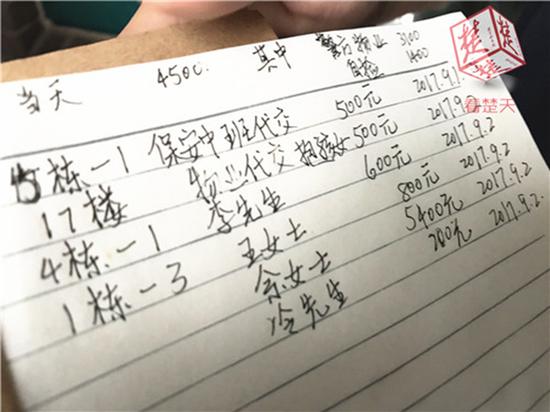 当天 4500. 其中 警方物业 3100
自检 1400
5栋一1 保安中班代交 500元 2017.9.1
17楼 物业代交 抱孩女 500元 2017.9.2
4栋一1 李先生 600元 2017.9.2
1栋一3 王女士 800元 2017.9.2
余女士 5400元 2017.9.2
冷先生 200元 2017.9.2.
看楚天